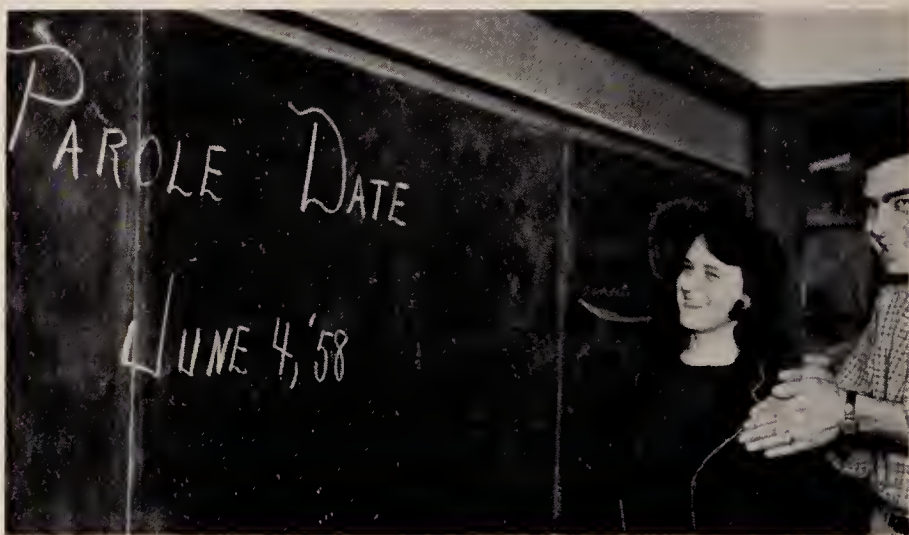 PAROLE DATE
JUNE 4, '58